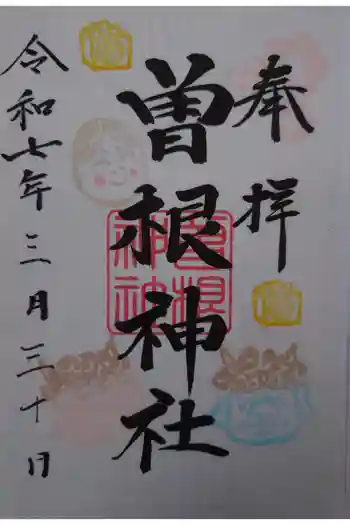 奉拝
曽根神社
令和七年三月三十日
曽根
神社